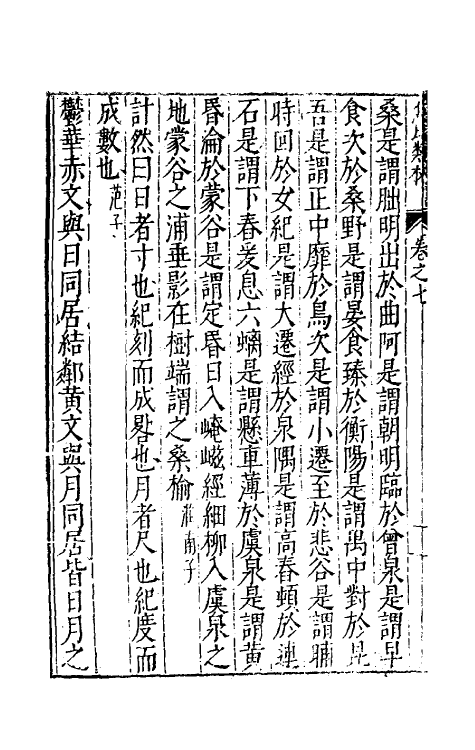 卷之七
桑是謂朏明出於曲阿是謂朝明臨於曾泉是謂早
食次於桑野是謂晏食臻於衡陽是謂禺中對於昆
吾是謂正中靡於鳥次是謂小遷至於悲谷是謂晡
時回於女紀是謂大遷經於泉隅是謂高舂頓於連
石是謂下舂爰息六螭是謂懸車薄於虞泉是謂黄
昏淪於蒙谷是謂定昏日入崦嵫經細柳入虞泉之
地蒙谷之浦垂影在樹端謂之桑榆淮南子
計然曰日者寸也紀刻而成晷也月者尺也紀度而
成數也范子
鬱華赤文與日同居結鄰黄文與月同居皆日月之